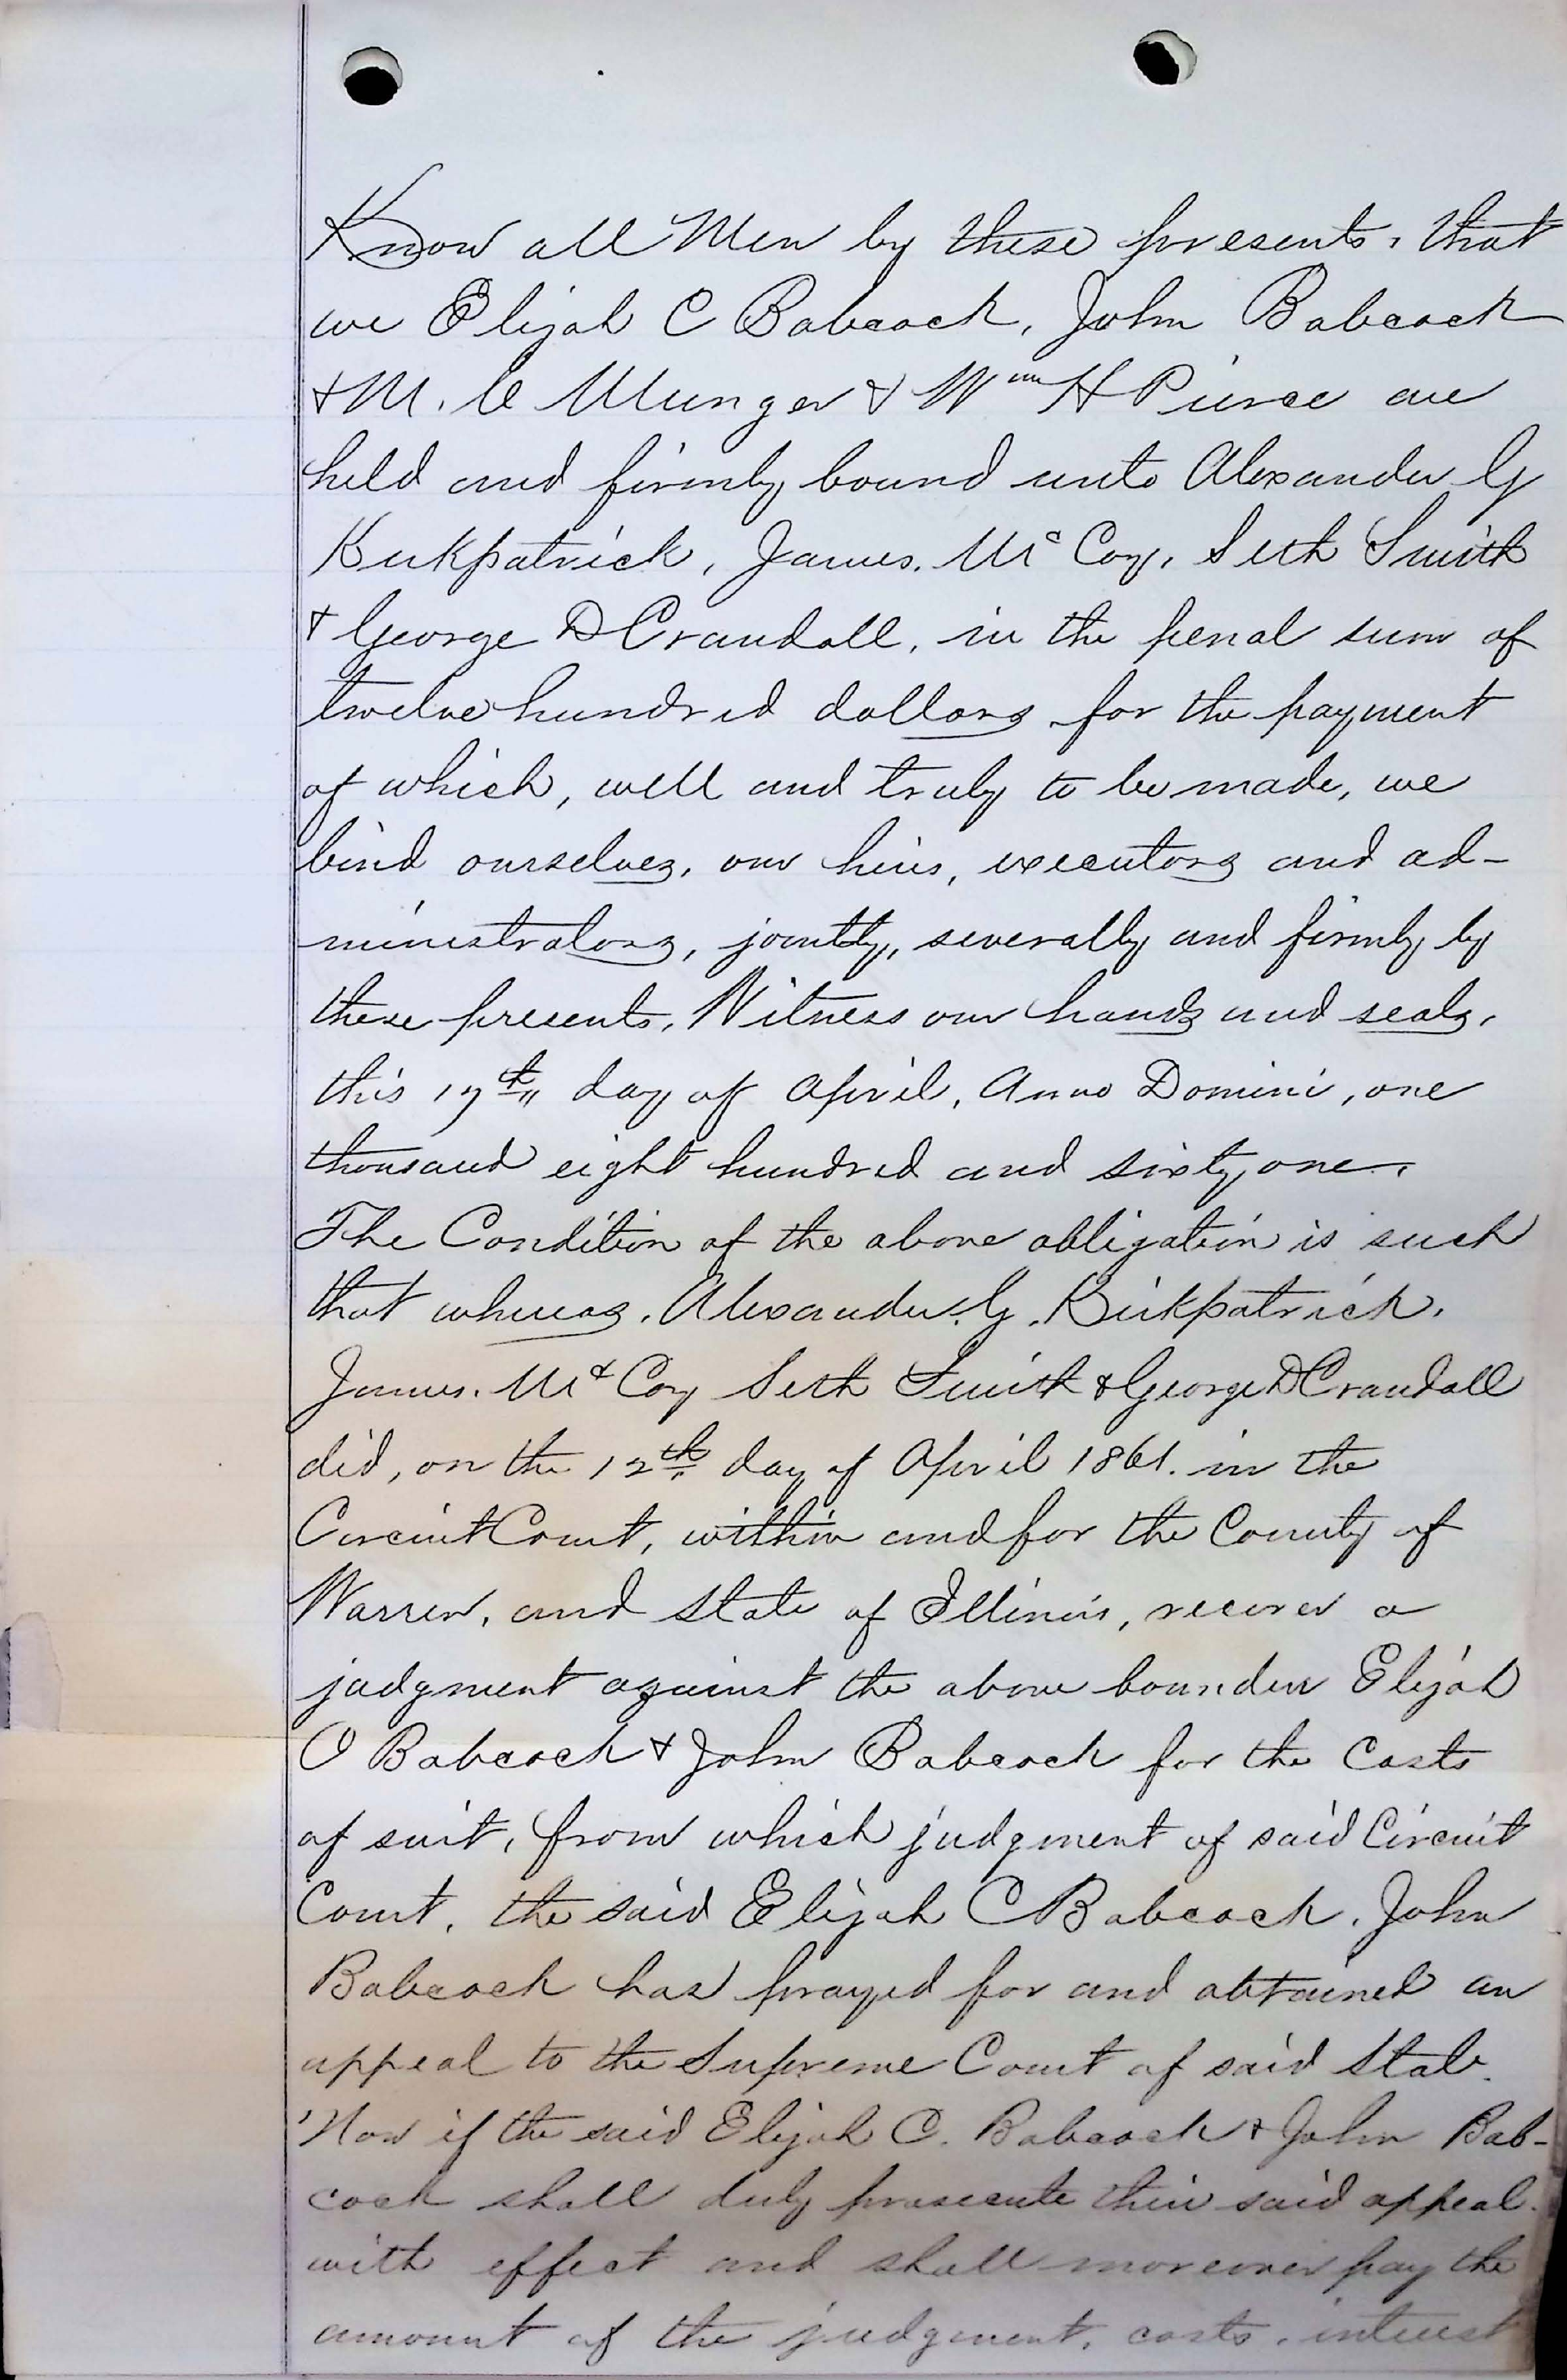 Know all Men by these presents, that
we Elijah C Babcock, John Babcock
& M. C Munger & Wm H Pierce are
held and firmly bound unto Alexander G
Kirkpatrick, James. Mc Coy, Seth Smith
& George D Crandall, in the penal sum of
twelve hundred dollars for the payment
of which, well and truly to be made, we
bind ourselves, our heirs, executors and ad-
ministrators, jointly, severally and firmly by
these presents, Witness our hands and seals,
this 17th day of April, Anno Domini, one
thousand eight hundred and sixty one.
The Condition of the above obligation is such
that whereas, Alexander. G. Kirkpatrick.
James. Mc Coy Seth Smith & George D Crandall
did, on the 12th day of April 1861. in the
Circuit Court, within and for the County of
Warren, and State of Illinois, recover a
judgment against the above bounden Elijah
C Babcock & John Babcock for the Costs
of suit, from which judgment of said Circuit
Court, the said Elijah C Babcock, John
Babcock has prayed for and obtained an
appeal to the Supreme Court of said State.
Now if the said Elijah C. Babcock & John Bab-
cock shall duly prosecute their said appeal.
with effect and shall moreover pay the
amount of the judgment, costs, interest